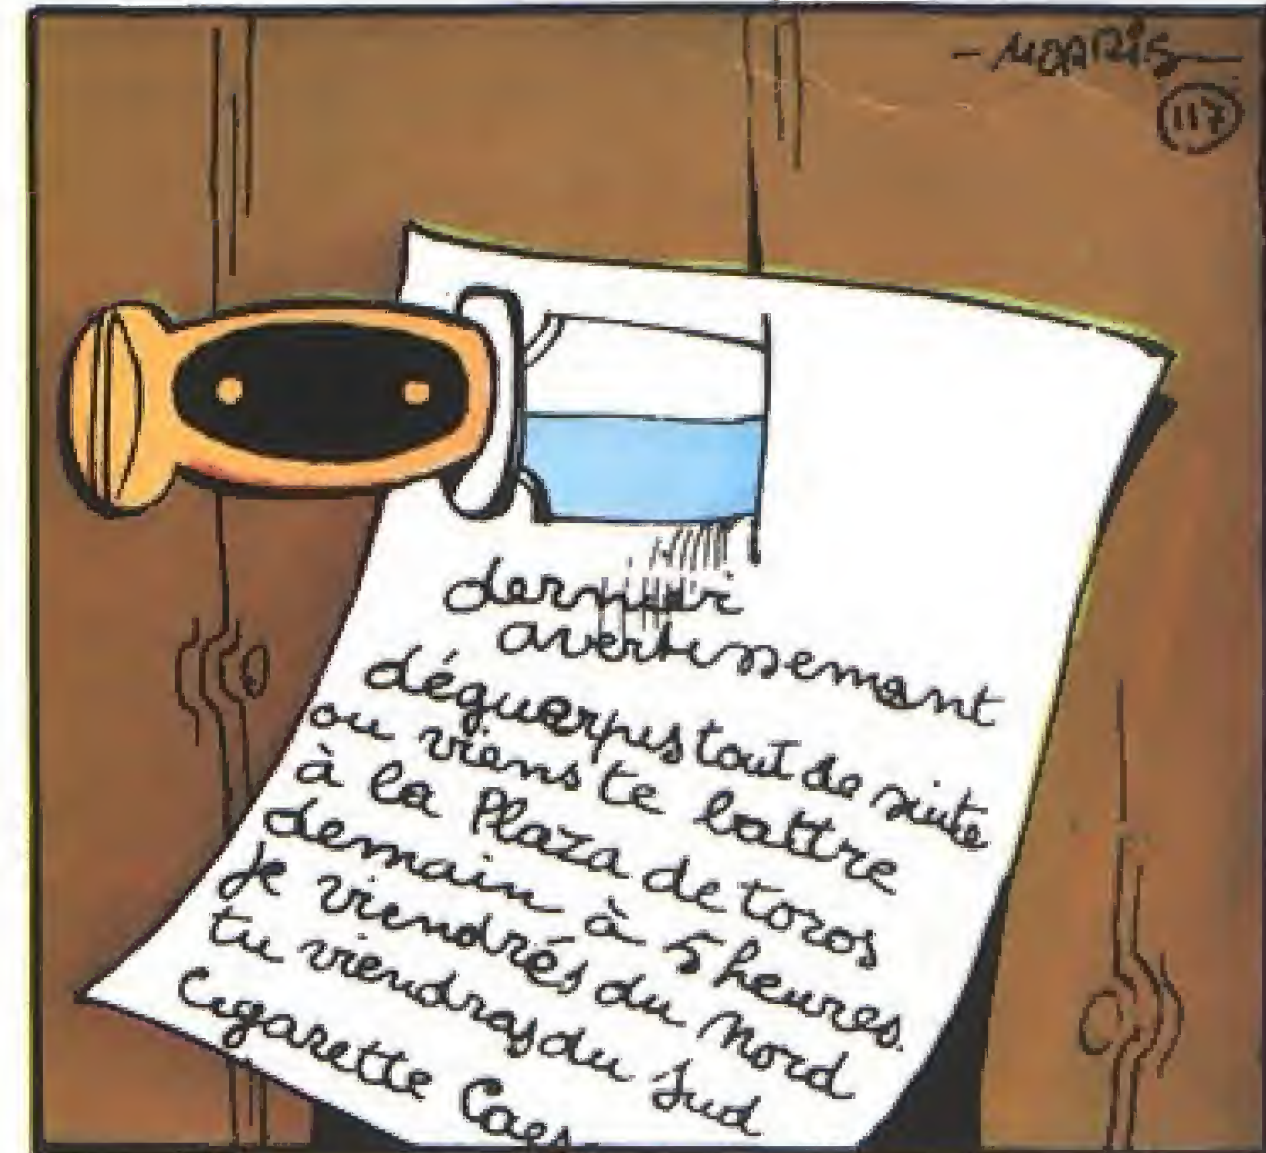 - MORRIS -
117
dernier
avertissement
déguerpis tout de suite
ou viens te battre
à la Plaza de toros
demain à 5 heures.
Je viendrés du Nord
tu viendras du Sud
Cigarette Caes